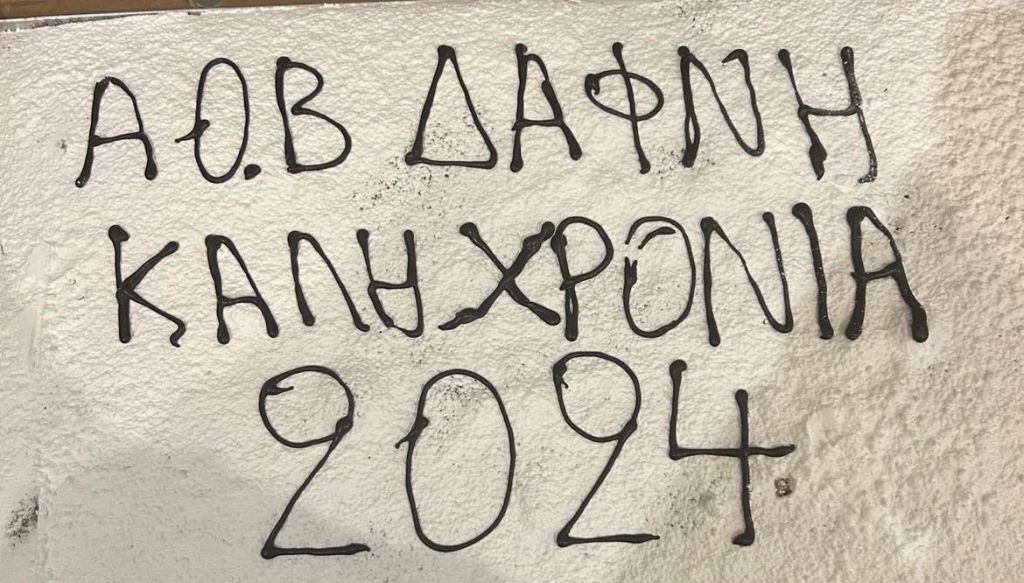 Α Ο.Β ΔΑΦΝΗ
ΚΑΛΗ ΧΡΟΝΙΑ
2024